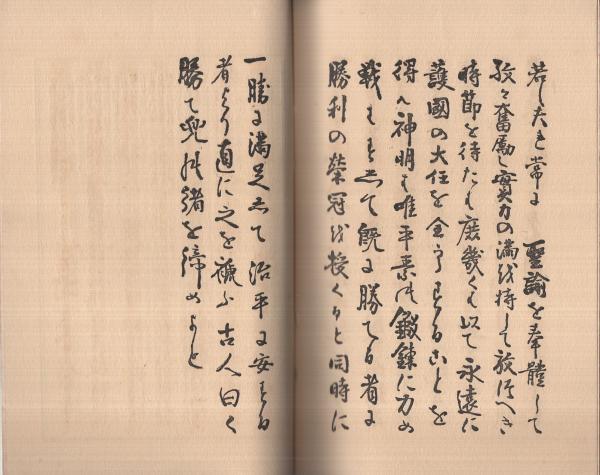 若し夫れ常に 聖諭を奉體して
孜々奮勵し實力の満を持して放つへき
時節を待たは庶幾くは以て永遠に
護國の大任を全うすることを
得ん神明は唯平素の鍛錬に力め
戰はすして既に勝てる者に
勝利の榮冠を授くると同時に
一勝に満足して治平に安する
者より直に之を褫ふ古人曰く
勝て兜の緒を締めよと